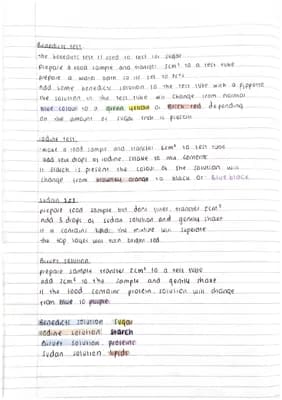 Benedicts test
the benedicts test is used to test for sugar
prepare a food sample and transfer 5cm³ to a test tube
prepare a water bath so its set to 75°c
Add some benedicts solution to the test tube with a pippette
the solution in the test tube will change from normal
blue colour to a green yellow or brick red depending
on the amount of sugar that is present
Iodine test
make a food sample and transfer 5cm³ to test tube
Add few drops of iodine. shake to mix contents
if starch is present the colour of the solution will
change from brownley orange to black or blue black
Sudan test
prepare food sample but dont filter, transfer 5cm³
Add 3 drops of sudan solution and gently shake
if it contains lipids the mixture will seperate
the top layer will turn bright red
Biuret solution
prepare sample transfer 2cm³ to a test tube
add 2cm³ to the sample and gently shake
if the food contains protein, solution will change
from blue to purple
Benedicts solution sugar
iodine solution starch
Biuret solution proteins
Sudan solution lipids